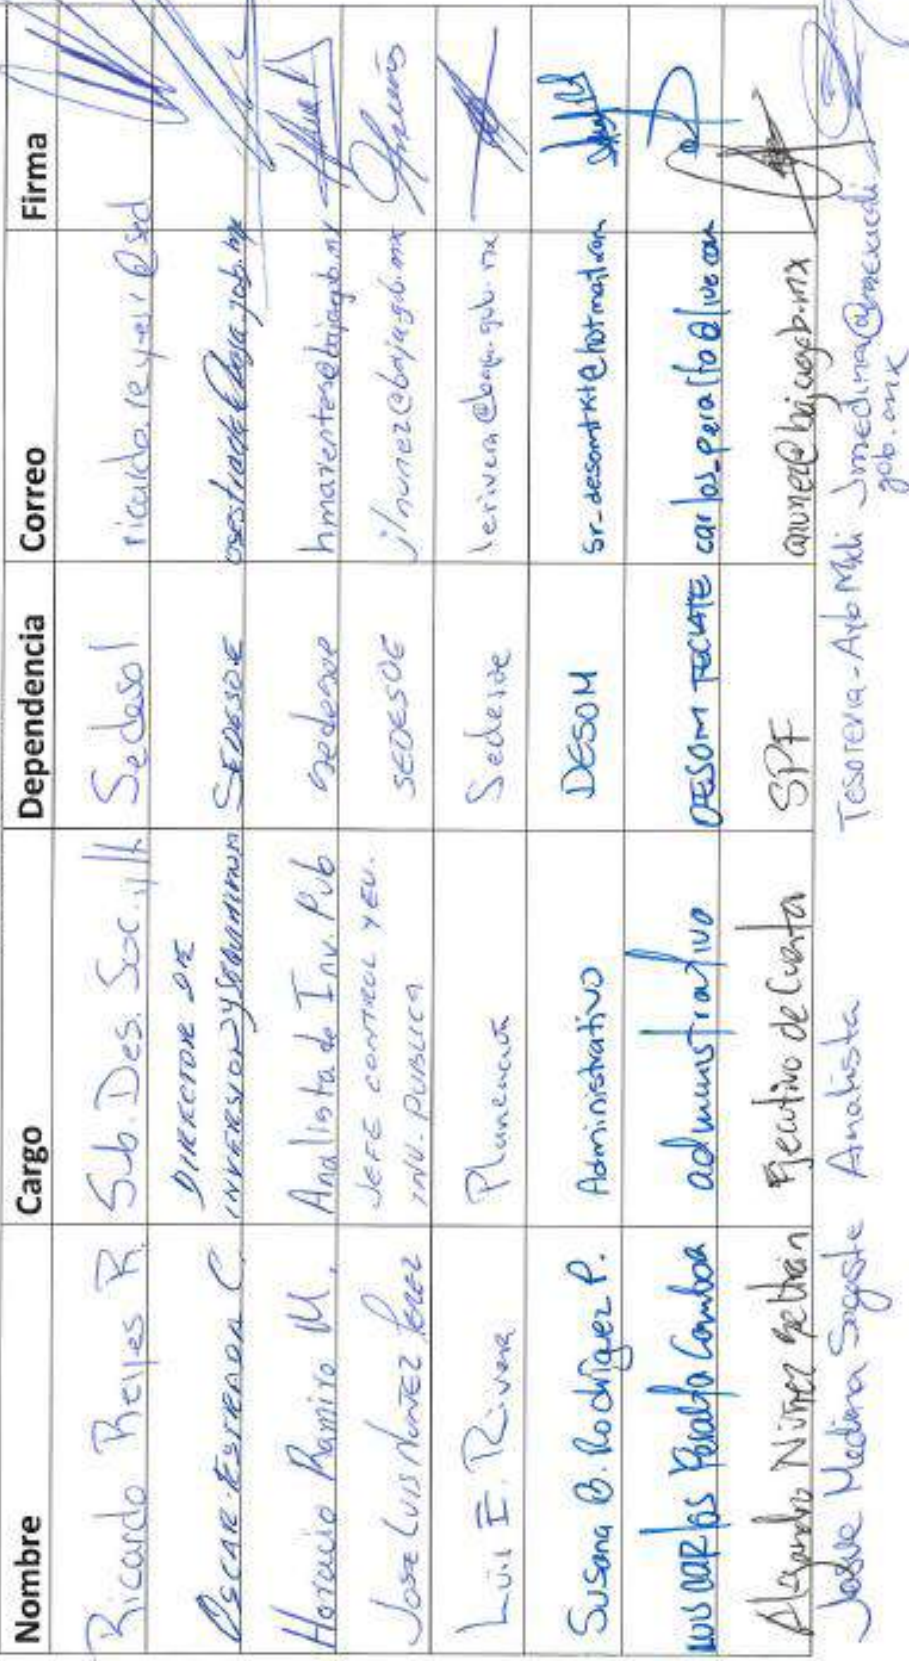 Nombre Cargo Dependencia Correo Firma
Ricardo Reyes R. Sub. Des. Soc. Sedesol
OSCAR ESTRADA C. DIRECTOR DE
INVERSION Y SEGUIMIENTO SEDESOE
Horacio Ramiro M. Analista de Inv. Pub Sedesoe
Jose Luis Nuñez Perez JEFE CONTROL Y EV.
INV. PUBLICA SEDESOE jlnunez@baja.gob.mx
Luis E. Rivera Planeación lerivera@baja.gob.mx
Susana B. Rodríguez P. Administrativo DESOM sr_desomtkt@hotmail.com
Luis Carlos Peralta Gamboa administrativo DESOM TECATE carlos_peralta@live.com
Alejandro Núñez Beltrán Ejecutivo de Cuenta SPF anunez@baja.gob.mx
Josue Medina Sagaste Analista Tesoreria - Ayto Mxli Jmedina@mexicali.
gob.mx